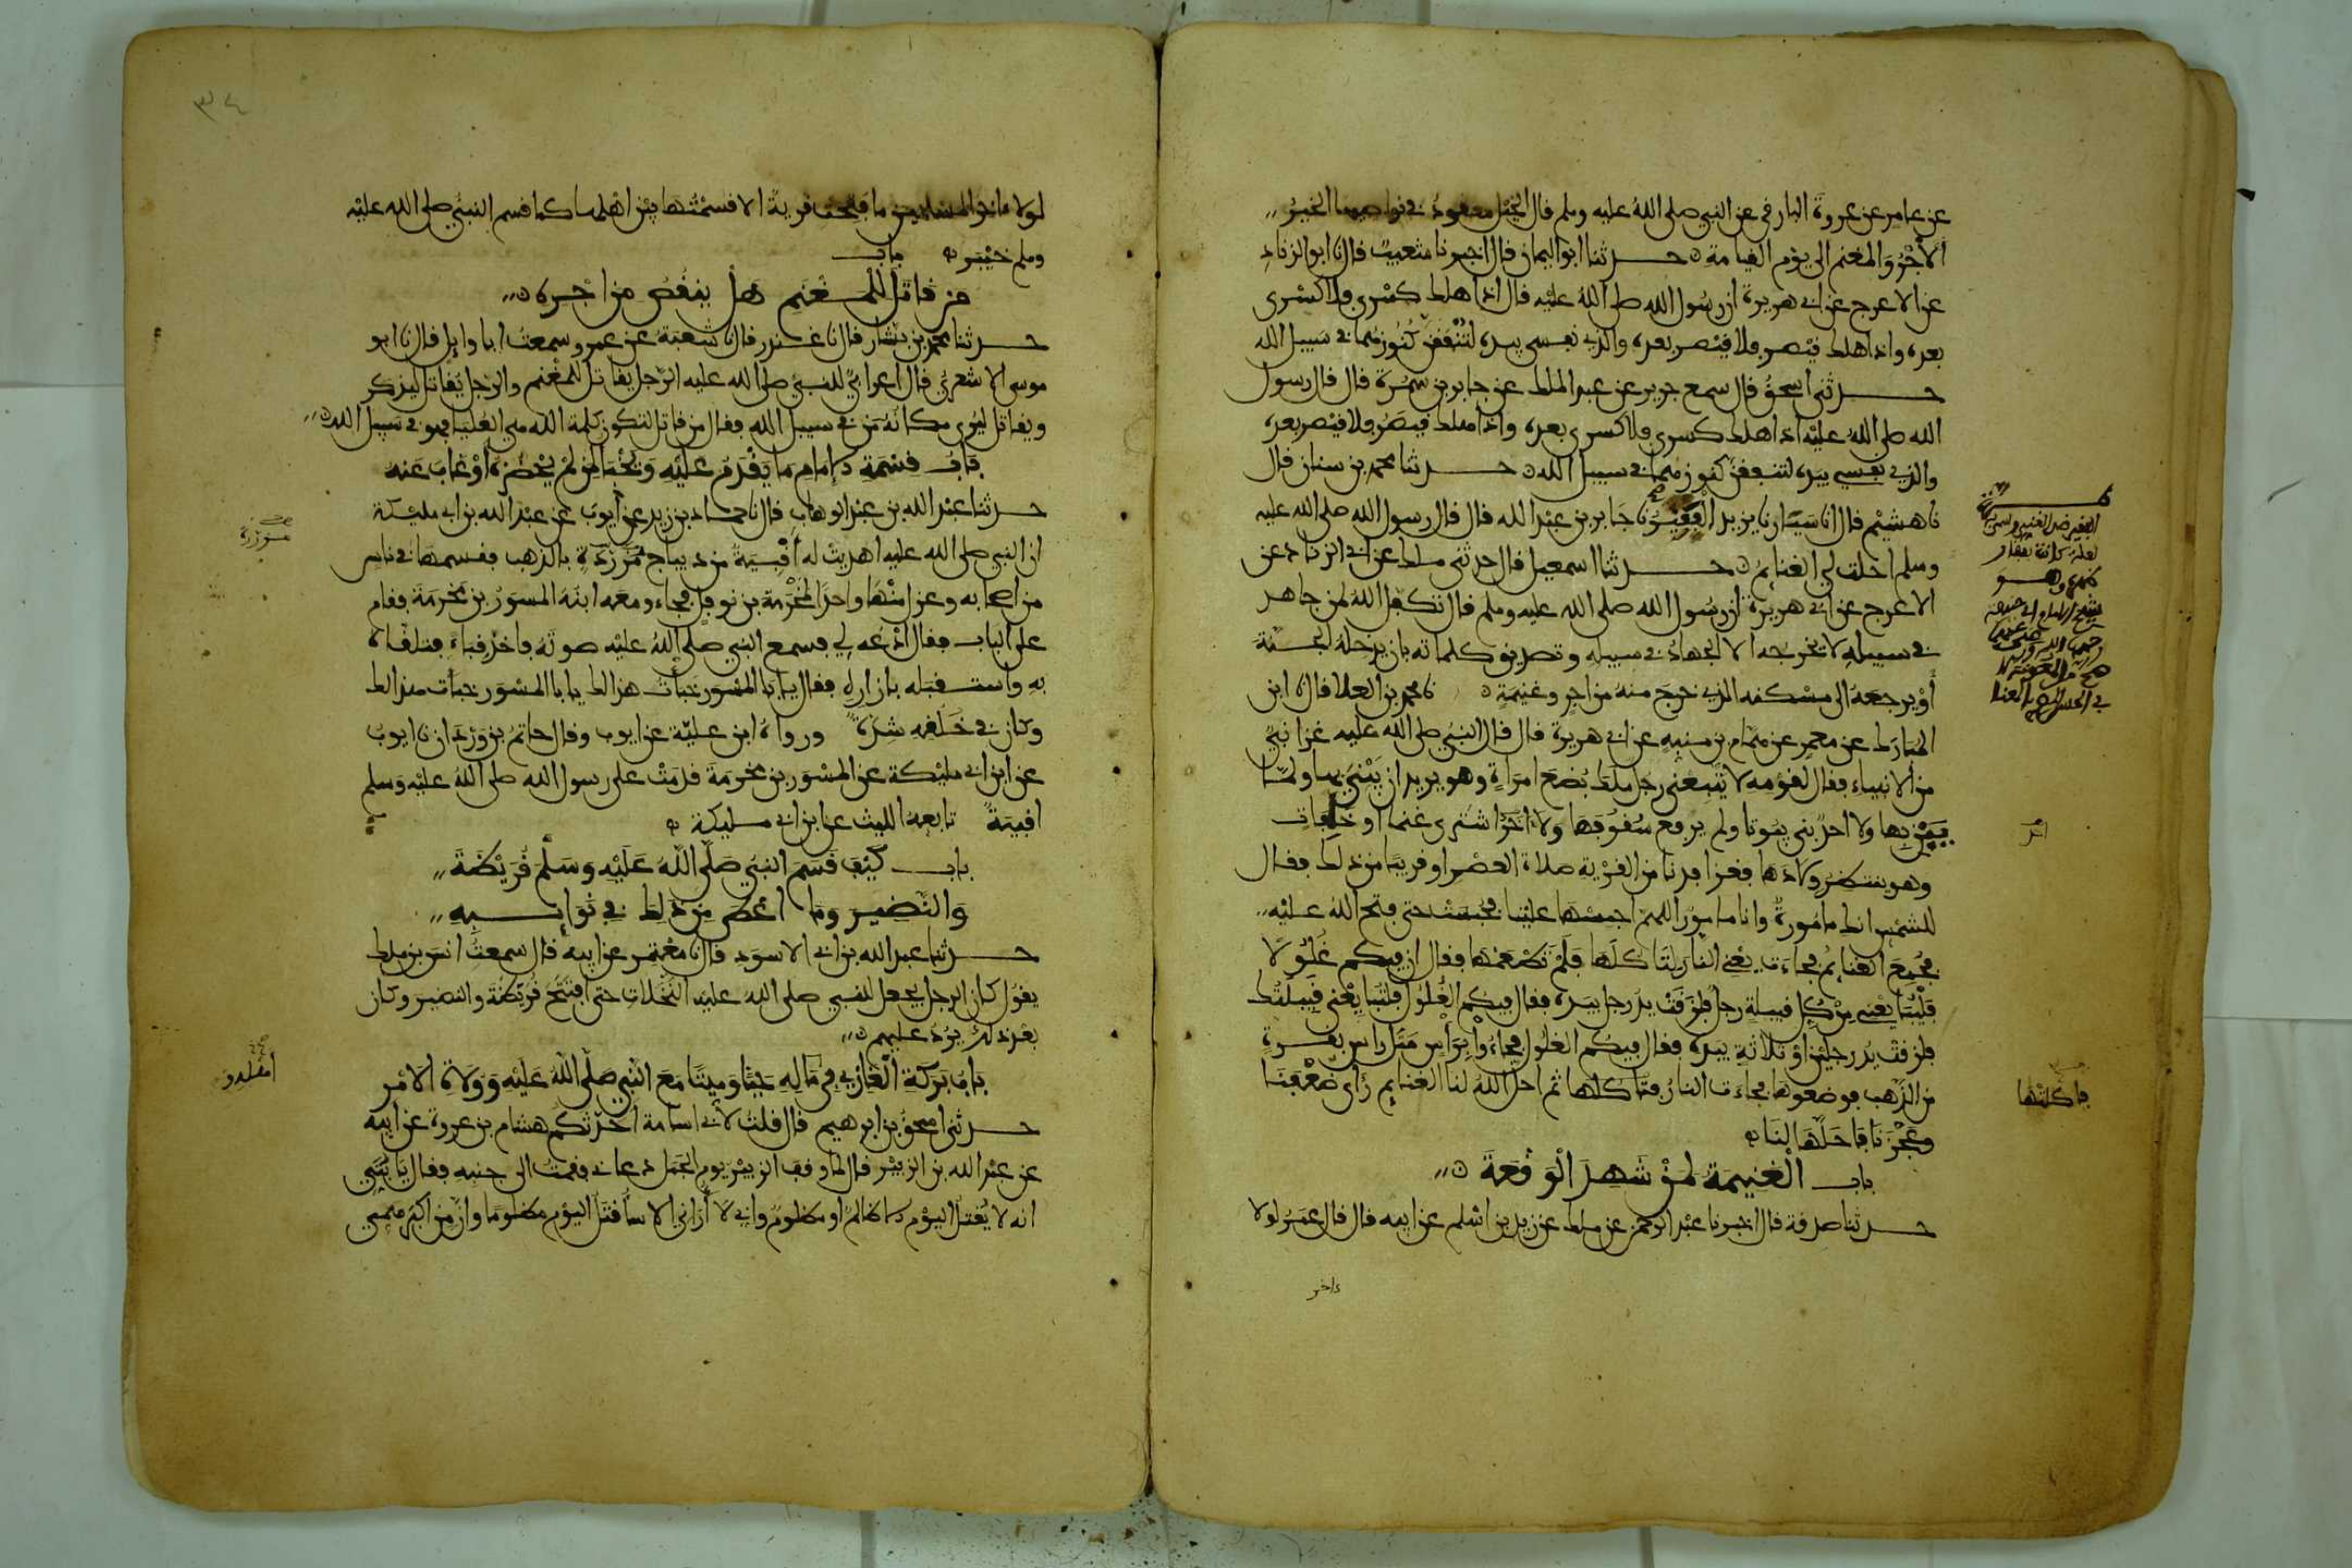 عن عامر عن عروة البارقي عن النبي صلى الله عليه وسلم قال الخيل معقود في نواصيها الخير
الأجر والمغنم الى يوم القيامة حدثنا ابو اليمان قال اخبرنا شعيب قال نا ابو الزناد
عن الاعرج عن ابي هريرة ان رسول الله صلى الله عليه قال اذا هلك كسرى فلا كسرى
بعده واذا هلك قيصر فلا قيصر بعده والذي نفسي بيده لتنفقن كنوزهما في سبيل الله
حدثني اسحق قال سمع جرير عن عبد الملك عن جابر بن سمرة قال قال رسول
الله صلى الله عليه اذا هلك كسرى فلا كسرى بعده واذا هلك قيصر فلا قيصر بعده
والذي نفسي بيده لتنفقن كنوزهما في سبيل الله حدثنا محمد بن سنان قال
نا هشيم قال انا سيار نا يزيد الفقير نا جابر بن عبد الله قال قال رسول الله صلى الله عليه
وسلم احلت لي الغنائم حدثنا اسمعيل قال حدثني ملك عن ابي الزناد عن
الاعرج عن ابي هريرة ان رسول الله صلى الله عليه وسلم قال تكفل الله لمن جاهد
في سبيله لا يخرجه الا الجهاد في سبيله وتصديق كلماته بان يدخله الجنة
أو يرجعه الى مسكنه الذي خرج منه من اجر وغنيمة نا محمد بن العلا قال نا ابن
المبارك عن معمر عن همام بن منبه عن ابي هريرة قال قال النبي صلى الله عليه غزا نبي
من الانبياء فقال لقومه لا يتبعني رجل ملك بضع امراة وهو يريد ان يبني بها ولما
يبن بها ولا احد بنى بيوتا ولم يرفع سقوفها ولا احد اشترى غنما او خلفات
وهو ينتظر ولادها فغزا فدنا من القرية صلاة العصر او قريبا من ذلك فقال
للشمس انك مامورة وانا مامور اللهم احبسها علينا فحبست حتى فتح الله عليه
فجمع الغنائم فجاءت يعني النار لتاكلها فلم تطعمها فقال ان فيكم غلولا
فليبايعني من كل قبيلة رجل فلزقت يد رجل بيده فقال فيكم الغلول فلتبايعني قبيلتك
فلزقت يد رجلين او ثلاثة بيده فقال فيكم الغلول فجاءوا براس مثل راس بقرة
من الذهب فوضعوها فجاءت النار فتاكلها ثم احل الله لنا الغنائم راى ضعفنا
وعجزنا فاحلها لنا
باب الغنيمة لمن شهد الوقعة
حدثنا صدقة قال اخبرنا عبد الرحمن عن ملك عن زيد بن اسلم عن ابيه قال قال عمر لولا
ءاخر
فاكلتها
٣٤
لولا ءاخر المسلمين ما فتحت قرية الا قسمتها بين اهلها كما قسم النبي صلى الله عليه
وسلم خيبر باب
من قاتل للمغنم هل ينقص من اجره
حدثنا محمد بن بشار قال نا غندر قال نا شعبة عن عمرو سمعت ابا وايل قال نا ابو
موسى الاشعري قال اعرابي للنبي صلى الله عليه الرجل يقاتل للمغنم والرجل يقاتل ليذكر
ويقاتل ليرى مكانه من في سبيل الله فقال من قاتل لتكون كلمة الله هي العليا فهو في سبيل الله
باب قسمة الامام ما يقدم عليه ويخبا لمن لم يحضره أو غاب عنه
حدثنا عبد الله بن عبد الوهاب قال نا حماد بن زيد عن أيوب عن عبد الله بن ابي مليكة
ان النبي صلى الله عليه اهديت له أقبية من ديباج مزردة بالذهب فقسمها في ناس
من اصحابه وعزل منها واحدا لمخرمة بن نوفل فجاء ومعه ابنه المسور بن مخرمة فقام
على الباب فقال ادعه لي فسمع النبي صلى الله عليه صوته فاخذ قباء فتلقاه
به واستقبله بازراره فقال يابا المسور خبأت هذا لك يابا المسور خبأت هذا لك
وكان في خلقه شدة ورواه ابن علية عن ايوب وقال حاتم بن وردان نا ايوب
عن ابن ابي مليكة عن المسور بن مخرمة قدمت على رسول الله صلى الله عليه وسلم
اقبية تابعه الليث عن ابن ابي مليكة
باب كيف قسم النبي صلى الله عليه وسلم قريظة
والنضير وما اعطى من ذلك في نوائبه
حدثنا عبد الله بن ابي الاسود قال نا معتمر عن ابيه قال سمعت انس بن ملك
يقول كان الرجل يجعل للنبي صلى الله عليه النخلات حتى افتتح قريظة والنضير وكان
بعد ذلك يرد عليهم
باب بركة الغازي في ماله حيا وميتا مع النبي صلى الله عليه وولاة الامر
حدثني اسحق بن ابرهيم قال قلت لابي اسامة احدثكم هشام بن عروة عن ابيه
عن عبد الله بن الزبير قال لما وقف الزبير يوم الجمل دعاني فقمت الى جنبه فقال يا بني
انه لا يقتل اليوم الا ظالم او مظلوم واني لا أراني الا سأقتل اليوم مظلوما وان من اكبر همي